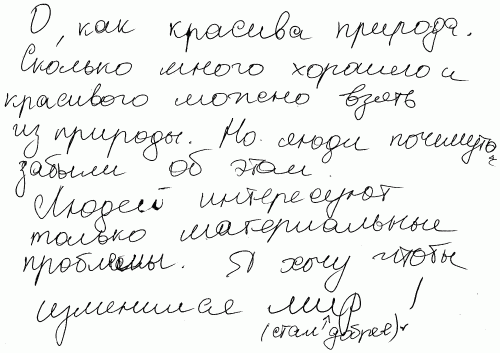 О, как красива природа.
Сколько много хорошего и
красивого можно взять
из природы. Но люди почемуто
забыли об этом.
Людей интересуют
только материальные
проблемы. Я хочу чтобы
изменился мир!
(стал добрее)